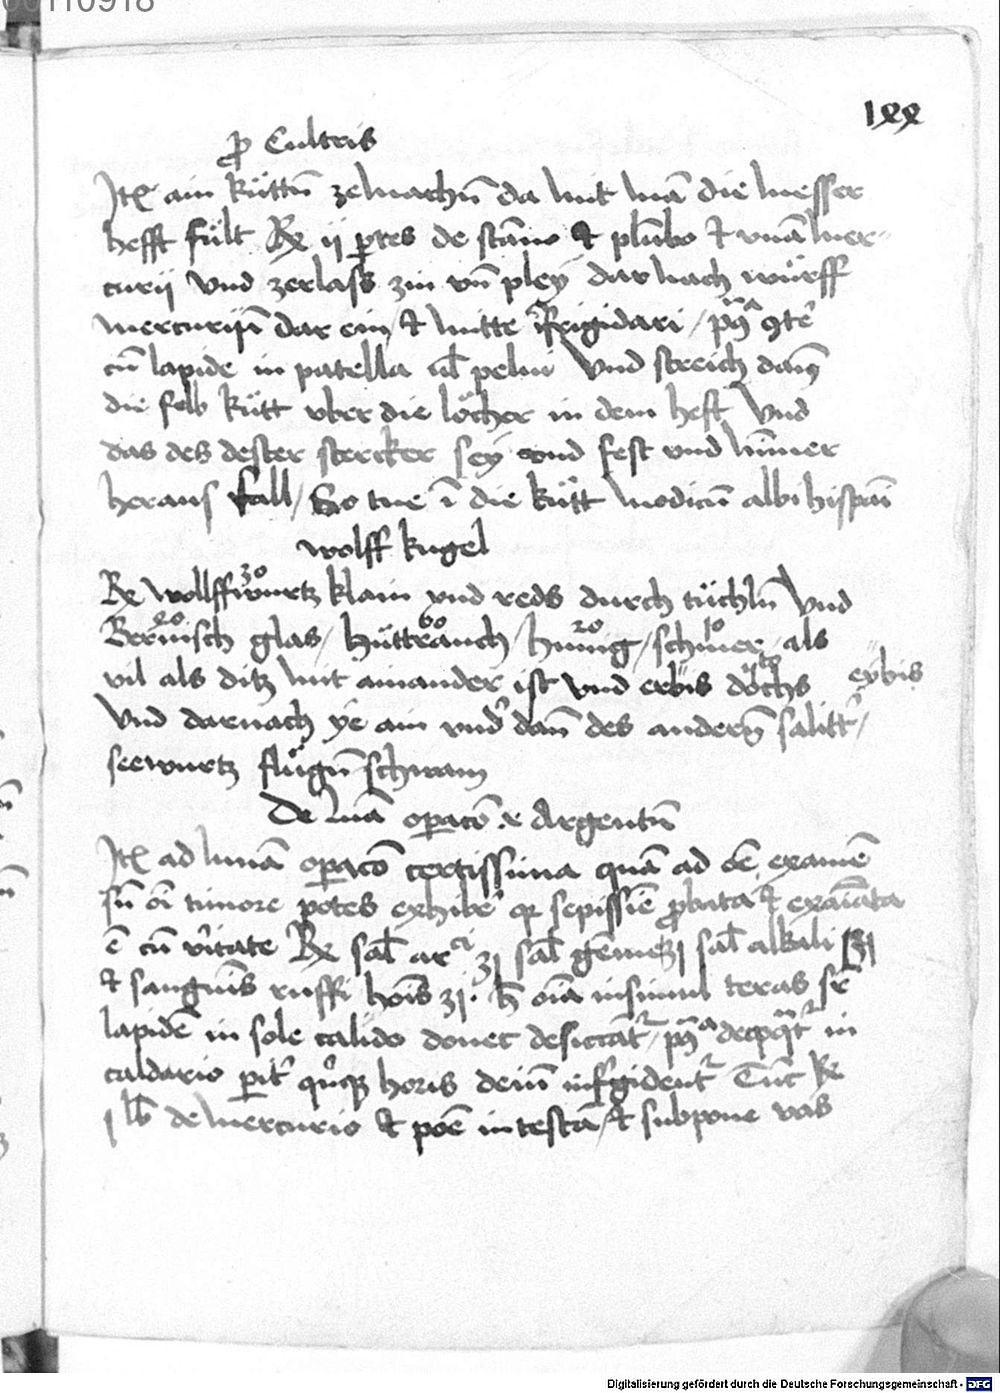 00110918
lxx
ꝓ Cultris
Itē ain küttñ zemachñ da mit mā die messer
hefft fült Rx ij ꝑtes de stāno et plūbo et vnā mer-
curij vnd zerlass zin vn̄ pley dar nach würff
mercuriū dar ein / et mitte īfrigidari /
cū lapide in patella vl̄ pelui vnd streich
die selb kütt vber die löcher in dem heft vnd
das des dester stercker sey vnd fest vnd nim̄er
heraus fall / So tue ī die kütt modicū albi hispan̄
wolff kugel
Rx wolffwurtz klain vnd reds durch tüchln̄ vnd
30
glas / hüttrauch / hunig / schmer als
20 60 20 10
vil als ditz mit ainander ist vnd erbis
eybis
vnd darnach ye ain vnd' dan̄ des andern̄ salitt' /
seewurtz flügn̄ schwam
De luna oꝑacō Argentū
Itē ad lunā oꝑacō certissima quā ad oē examē
sn̄ oī timore potes exhibe' qr sepissīe ꝓbata et exaīata
ē cū v'itate Rx sal ar sal gēme sal alkali
et sanguīs ruffi hoīs ʒj. h̄ oīa insimul teras sr̄
lapidē in sole calido donec desiccat' in
caldario horis dein̄ infrigident' Tūc Rx
j lb de mercurio et poē in testā / et subpone vas
Digitalisierung gefördert durch die Deutsche Forschungsgemeinschaft - DFG